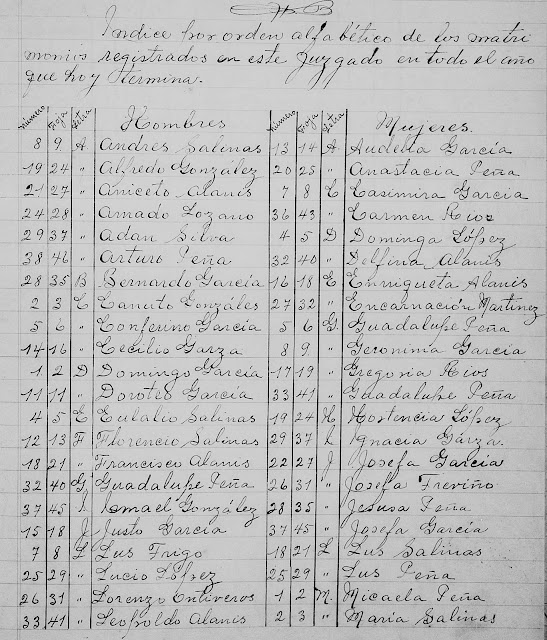 Indice por orden alfabético de los matri
monios registrados en este Juzgado en todo el año
que hoy termina.
Número Foja Letra Hombres Número Foja Letra Mujeres.
8 9 A. Andrés Salinas 13 14 A Audelia García
19 24 " Alfredo González 20 25 " Anastacia Peña
21 27 " Aniceto Alanis 7 8 C Casimira García
24 28 " Amado Lozano 36 43 " Carmen Rios
29 37 " Adan Silva 4 5 D Dominga López
38 46 " Arturo Peña 32 40 " Delfina Alanis
28 35 B Bernardo García 16 18 E Enriqueta Alanis
2 3 C Canuto Gonzáles 27 32 " Encarnación Martinez
5 6 " Conferino García 5 6 G. Guadalupe Peña
14 16 " Cecilio Garza 8 9. " Geronima García
1 2 D Domingo García 17 19 " Gregoria Rios
11 11 " Doroteo García 33 41 " Guadalupe Peña
4 5 E Eulalio Salinas 19 24 H Hortencia López
12 13 F Florencio Salinas 29 37 I Ignacia Garza.
18 21 " Francisco Alanis 22 27 J Josefa García
32 40 G Guadalupe Peña 26 31 " Josefa Treviño
37 45 I Ismael González 28 35 " Jesusa Peña
15 18 J Justo García 37 45 " Josefa García
7 8 L Lus Trigo 18 21 L Lus Salinas
25 29 " Lucio López 25 29 " Lus Peña
26 31 " Lorenzo Ontiveros 1 2 M. Micaela Peña
33 41 " Leopoldo Alanis 2 3 " María Salinas